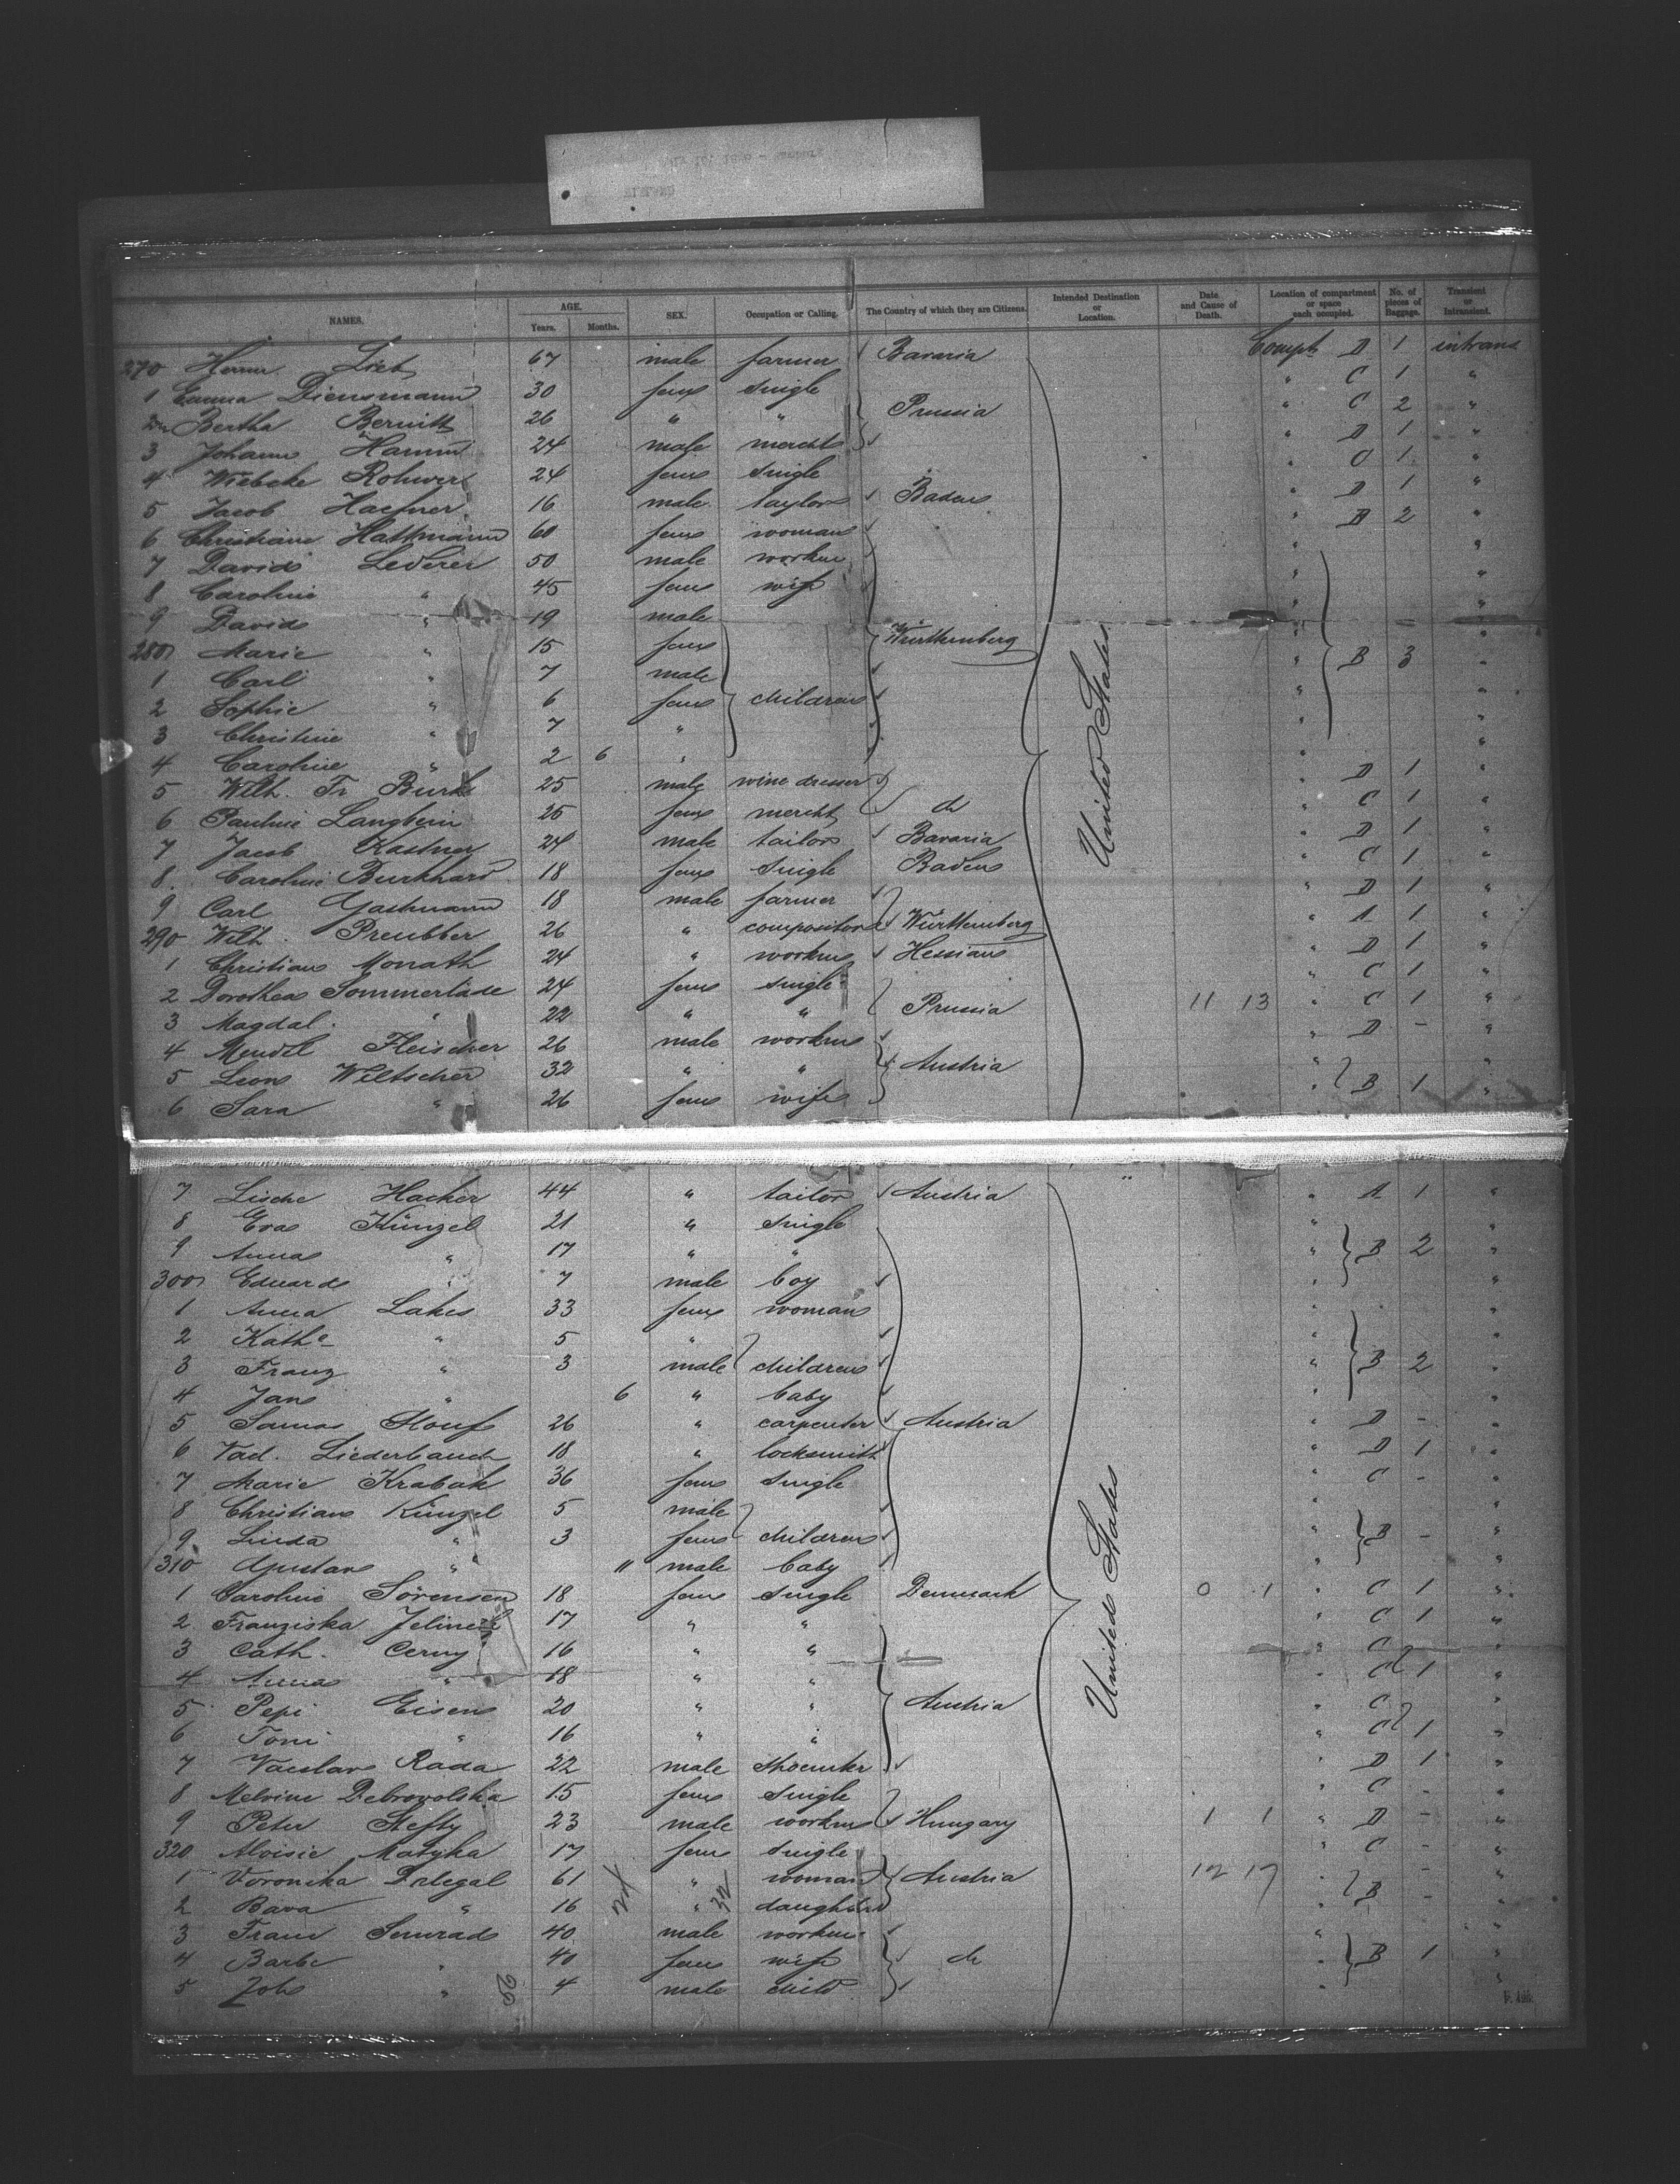 NAMES. AGE. Years. Months. SEX. Occupation or Calling. The Country of which they are Citizens. Intended Destination or Location. Date and Cause of Death. Location of compartment or space each occupied. No. of pieces of Baggage. Transient or Intransient.
270 Herm Lieb 67 male farmer Bavaria Compt D 1 intrans
1 Emma Diensmann 30 fem single " C 1 "
2 Bertha Bernitt 26 " " Prussia " C 2 "
3 Johann Hamm 24 male mercht " D 1 "
4 Wiebcke Rohwer 24 fem single " C 1 "
5 Jacob Haefner 16 male taylor Baden " D 1 "
6 Christiane Hattmann 60 fem woman " B 2 "
7 David Lederer 50 male workm " "
8 Caroline " 45 fem wife " "
9 David " 19 male " "
280 Marie " 15 fem Württemberg " "
1 Carl " 7 male " B 3 "
2 Sophie " 6 fem children " "
3 Christine " 7 " " "
4 Caroline " 2 6 " " "
5 Wilh. Fr Burk 25 male wine dresser " D 1 "
6 Pauline Langbein 25 fem mercht do " C 1 "
7 Jacob Kastner 24 male tailor Bavaria " D 1 "
8 Caroline Burkhard 18 fem single Baden " C 1 "
9 Carl Gastmann 18 male farmer " D 1 "
290 Wilh. Preubber 26 " compositor Württemberg " A 1 "
1 Christian Monath 24 " workm Hessian " D 1 "
2 Dorothea Sommerlade 24 fem single " C 1 "
3 Magdal. " 22 " " Prussia 11 13 " C 1 "
4 Mendel Fleischer 26 male workm " D - "
5 Leon Wiltscher 32 " " Austria " "
6 Sara " 26 fem wife " B 1 "
United States
7 Lische Hacker 44 " tailor Austria " A 1 "
8 Eva Künzel 21 " single " "
9 Anna " 17 " " " B 2 "
300 Eduard " 7 male boy " "
1 Anna Lakes 33 fem woman " "
2 Kathe " 5 " " "
3 Franz " 3 male children " B 2 "
4 Jan " 6 " baby " "
5 26 " carpenter Austria " D - "
6 Liederbauch 18 " locksmith " D 1 "
7 Marie Krabak 36 fem single " C - "
8 Christian Künzel 5 male " "
9 Linda " 3 fem children " B - "
310 Gustav " 11 male baby " "
1 Caroline Sörensen 18 fem single Denmark 0 1 " C 1 "
2 Franziska Jelinek 17 " " " C 1 "
3 Cath. Cerny 16 " " " C "
4 Anna " 18 " " " C 1 "
5 Pepi Eisen 20 " " Austria " C "
6 Toni " 16 " " " C 1 "
7 Vaclav Rada 22 male shoemker " D 1 "
8 Melvine Debrowolska 15 fem single " C - "
9 Peter Stefty 23 male workm Hungary 1 1 " D - "
320 Aloisie Matyka 17 fem single " C - "
1 Voronika Drlegal 61 " woman Austria 12 17 " - "
2 Bava " 16 " daughter " B - "
3 Franz Semrad 40 male workm " "
4 Barbe " 40 fem wife do " B 1 "
5 Joh " 4 male child " "
United States